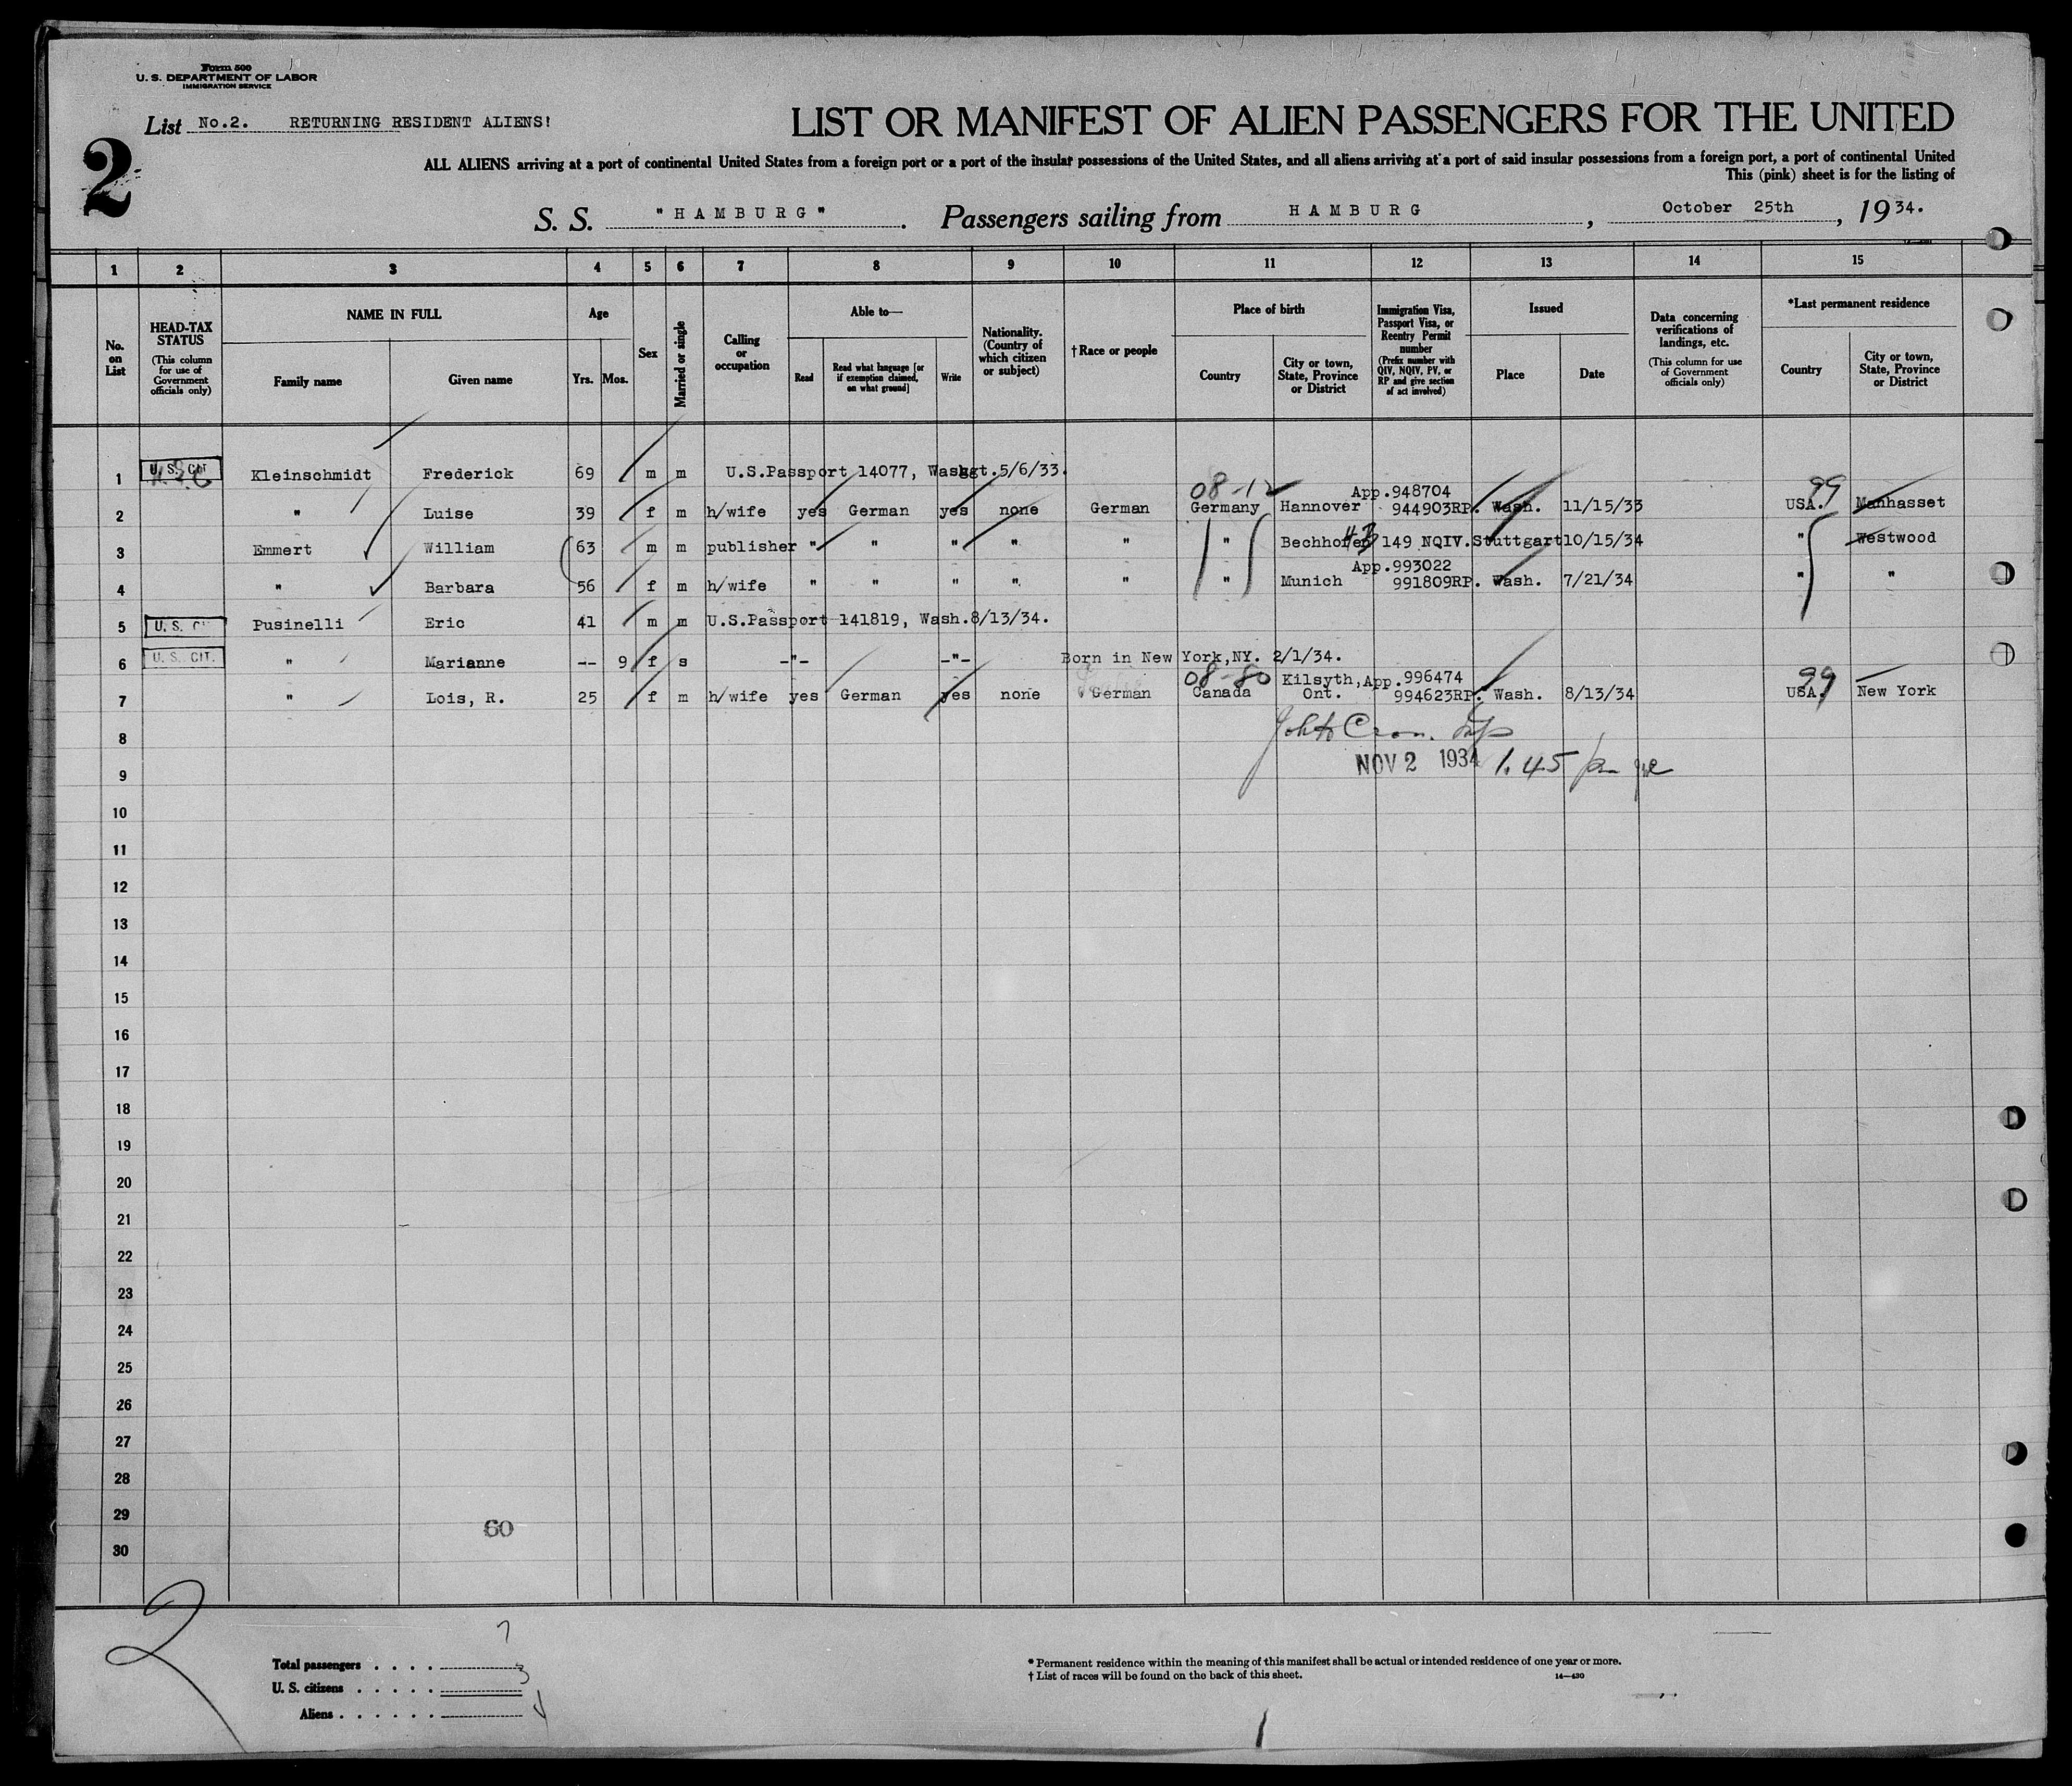 Form 500
U. S. DEPARTMENT OF LABOR
IMMIGRATION SERVICE
List No.2. RETURNING RESIDENT ALIENS!
2
LIST OR MANIFEST OF ALIEN PASSENGERS FOR THE UNITED
ALL ALIENS arriving at a port of continental United States from a foreign port or a port of the insular possessions of the United States, and all aliens arriving at a port of said insular possessions from a foreign port, a port of continental United
This (pink) sheet is for the listing of
S. S. "HAMBURG". Passengers sailing from HAMBURG, October 25th, 1934.
1 2 3 4 5 6 7 8 9 10 11 12 13 14 15
No. on List
HEAD-TAX STATUS (This column for use of Government officials only)
NAME IN FULL
Family name
Given name
Age
Yrs. Mos.
Sex
Married or single
Calling or occupation
Able to—
Read
Read what language [or if exemption claimed, on what ground]
Write
Nationality. (Country of which citizen or subject)
†Race or people
Place of birth
Country
City or town, State, Province or District
Immigration Visa, Passport Visa, or Reentry Permit number (Prefix number with QIV, NQIV, PV, or RP and give section of act involved)
Issued
Place
Date
Data concerning verifications of landings, etc. (This column for use of Government officials only)
*Last permanent residence
Country
City or town, State, Province or District
1 U. S. CIT Kleinschmidt Frederick 69 m m U.S.Passport 14077, Washgt.5/6/33.
08-12 App.948704 99
2 " Luise 39 f m h/wife yes German yes none German Germany Hannover 944903RP. Wash. 11/15/33 USA. Manhasset
3 Emmert William 63 m m publisher " " " " " " Bechhofen 43 149 NQIV.Stuttgart 10/15/34 " Westwood
App.993022
4 " Barbara 56 f m h/wife " " " " " " Munich 991809RP. Wash. 7/21/34 " "
5 U. S. C Pusinelli Eric 41 m m U.S.Passport 141819, Wash.8/13/34.
6 U. S. CIT. " Marianne -- 9 f s -"- -"- Born in New York,NY. 2/1/34.
08-80 Kilsyth, App.996474 99
7 " Lois, R. 25 f m h/wife yes German yes none German Canada Ont. 994623RP. Wash. 8/13/34 USA. New York
8
NOV 2 1934 1.45
9
10
11
12
13
14
15
16
17
18
19
20
21
22
23
24
25
26
27
28
29
60
30
2
Total passengers . . . . 7
U. S. citizens . . . . . 3
Aliens . . . . . . 4
* Permanent residence within the meaning of this manifest shall be actual or intended residence of one year or more.
† List of races will be found on the back of this sheet.
14—430
1